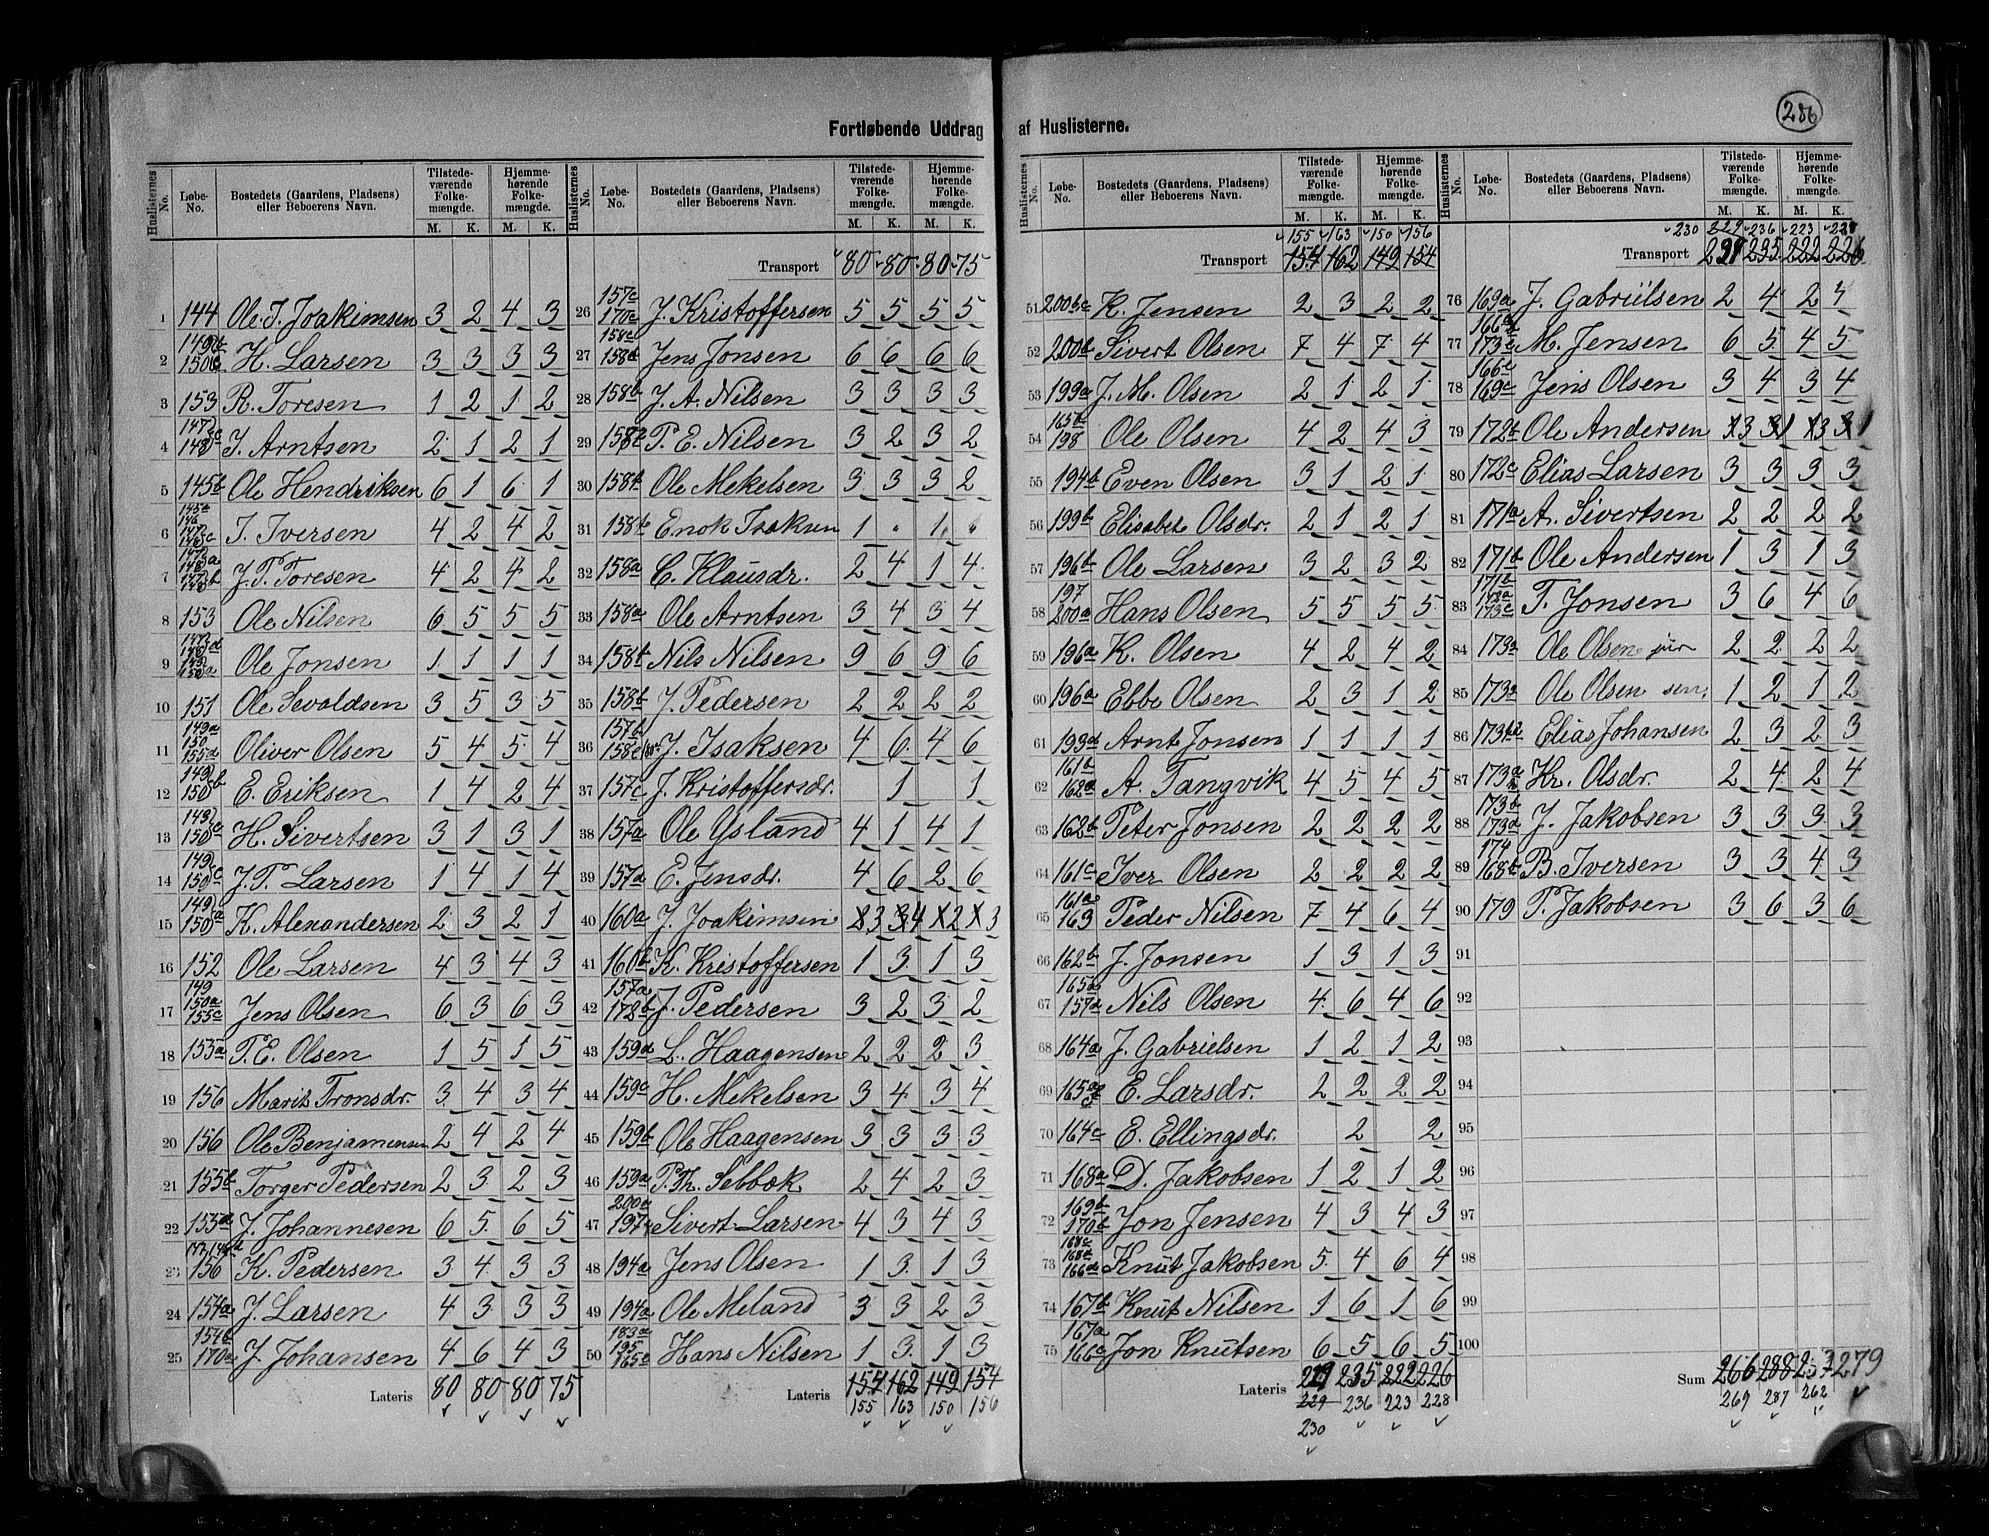 286
Fortløbende Uddrag af Huslisterne.
Huslisternes No. Løbe-No. Bostedets (Gaardens, Pladsens) eller Beboerens Navn. Tilstedeværende Folkemængde. Hjemmehørende Folkemængde.
M. K. M. K.
1 144 Ole T. Joakimsen 3 2 4 3
2 H. Larsen 3 3 3 3
3 153 R. Toresen 1 2 1 2
4 J. Arntsen 2 1 2 1
5 145b Ole Hendriksen 6 1 6 1
6 I. Iversen 4 2 4 2
7 J. T. Toresen 4 2 4 2
8 153 Ole Nilsen 6 5 5 5
9 Ole Jonsen 1 1 1 1
10 151 Ole Sevaldsen 3 5 3 5
11 Oliver Olsen 5 4 5 4
12 E. Eriksen 1 4 2 4
13 H. Sivertsen 3 1 3 1
14 J. P. Larsen 1 4 1 4
15 K. Alexandersen 2 3 2 1
16 152 Ole Larsen 4 3 4 3
17 149 150a 155c Jens Olsen 6 3 6 3
18 155a P. E. Olsen 1 5 1 5
19 156 Marit Tronsdr. 3 4 3 4
20 156 Ole Benjaminsen 2 4 2 4
21 155b Torger Pedersen 2 3 2 3
22 155a J. Johannesen 6 5 6 5
23 156 K. Pedersen 3 4 3 3
24 154a J. Larsen 4 3 3 3
25 154b 170a J. Johansen 4 6 4 3
Lateris 80 80 80 75
Huslisternes No. Løbe-No. Bostedets (Gaardens, Pladsens) eller Beboerens Navn. Tilstedeværende Folkemængde. Hjemmehørende Folkemængde.
M. K. M. K.
Transport 80 80 80 75
26 157c 170c J. Kristoffersen 5 5 5 5
27 158c 158d Jens Jonsen 6 6 6 6
28 158b J. A. Nilsen 3 3 3 3
29 P. E. Nilsen 3 2 3 2
30 158b Ole Mekelsen 3 3 3 2
31 158b Enok Isaksen 1 " 1 "
32 158a C. Klausdr. 2 4 1 4
33 158a Ole Arntsen 3 4 3 4
34 158b Nils Nilsen 9 6 9 6
35 158b J. Pedersen 2 2 2 2
36 157b J. Isaksen 4 6 4 6
37 157c J. Kristoffersdr. 1 1
38 157a Ole Ysland 4 1 4 1
39 157a E. Jensdr. 4 6 2 6
40 160a J. Joakimsen 3 4 2 3
41 160b K. Kristoffersen 1 3 1 3
42 157a 178b J. Pedersen 3 2 3 2
43 159d L. Haagensen 2 2 2 3
44 159c H. Mekelsen 3 4 3 4
45 159b Ole Haagensen 3 3 3 3
46 159a P. Th. Selbæk 2 4 2 3
47 200a Sivert Larsen 4 3 4 3
48 194a Jens Olsen 1 3 1 3
49 194a Ole Meland 3 3 2 3
50 183a 195 165c Hans Nilsen 1 3 1 3
Lateris 154 162 149 154
155 163 150 156
Huslisternes No. Løbe-No. Bostedets (Gaardens, Pladsens) eller Beboerens Navn. Tilstedeværende Folkemængde. Hjemmehørende Folkemængde.
M. K. M. K.
155 163 150 156
Transport 154 162 149 154
51 200bc K. Jensen 2 3 2 2
52 200b Sivert Olsen 7 4 7 4
53 199a J. M. Olsen 2 1 2 1
54 165b 198 Ole Olsen 4 2 4 3
55 194b Even Olsen 3 1 2 1
56 199b Elisabet Olsdr. 2 1 2 1
57 196b Ole Larsen 3 2 3 2
58 197 200a Hans Olsen 5 5 5 5
59 196a K. Olsen 4 2 4 2
60 196a Ebbe Olsen 2 3 1 2
61 193d Arnt Jonsen 1 1 1 1
62 161b 162a A. Tangvik 4 5 4 5
63 162b Peter Jonsen 2 2 2 2
64 161c Iver Olsen 2 2 2 2
65 161a 163 Peder Nilsen 7 4 6 4
66 162b J. Jonsen 1 3 1 3
67 165a 157d Nils Olsen 4 6 4 6
68 164a J. Gabrielsen 1 2 1 2
69 E. Larsdr. 2 2 2 2
70 164c E. Ellingsdr. 2 2
71 168a D. Jakobsen 1 2 1 2
72 169b 170b Jon Jensen 4 3 4 3
73 168c 168d 166d Knut Jakobsen 5 4 6 4
74 167b Knut Nilsen 1 6 1 6
75 167a 166c Jon Knutsen 6 5 6 5
Lateris 229 235 222 226
229 236 223 228
230
Huslisternes No. Løbe-No. Bostedets (Gaardens, Pladsens) eller Beboerens Navn. Tilstedeværende Folkemængde. Hjemmehørende Folkemængde.
M. K. M. K.
230 229 236 223 228
Transport 235 222 226
76 169a J. Gabrielsen 2 4 2 4
77 M. Jensen 6 5 4 5
78 166e 169c Jens Olsen 3 4 3 4
79 172b Ole Andersen 3 1 3 1
80 172c Elias Larsen 3 3 3 3
81 171a A. Sivertsen 2 2 2 2
82 171b Ole Andersen 1 3 1 3
83 T. Jonsen 3 6 4 6
84 173a Ole Olsen jun 2 2 2 2
85 173a Ole Olsen sen. 1 2 1 2
86 Elias Johansen 2 3 2 3
87 173a Kr. Olsdr. 2 4 2 4
88 173b 173d J. Jakobsen 3 3 3 3
89 174 168b B. Iversen 3 3 4 3
90 179 P. Jakobsen 3 6 3 6
91
92
93
94
95
96
97
98
99
100
Sum 266 288 257 279
269 287 262